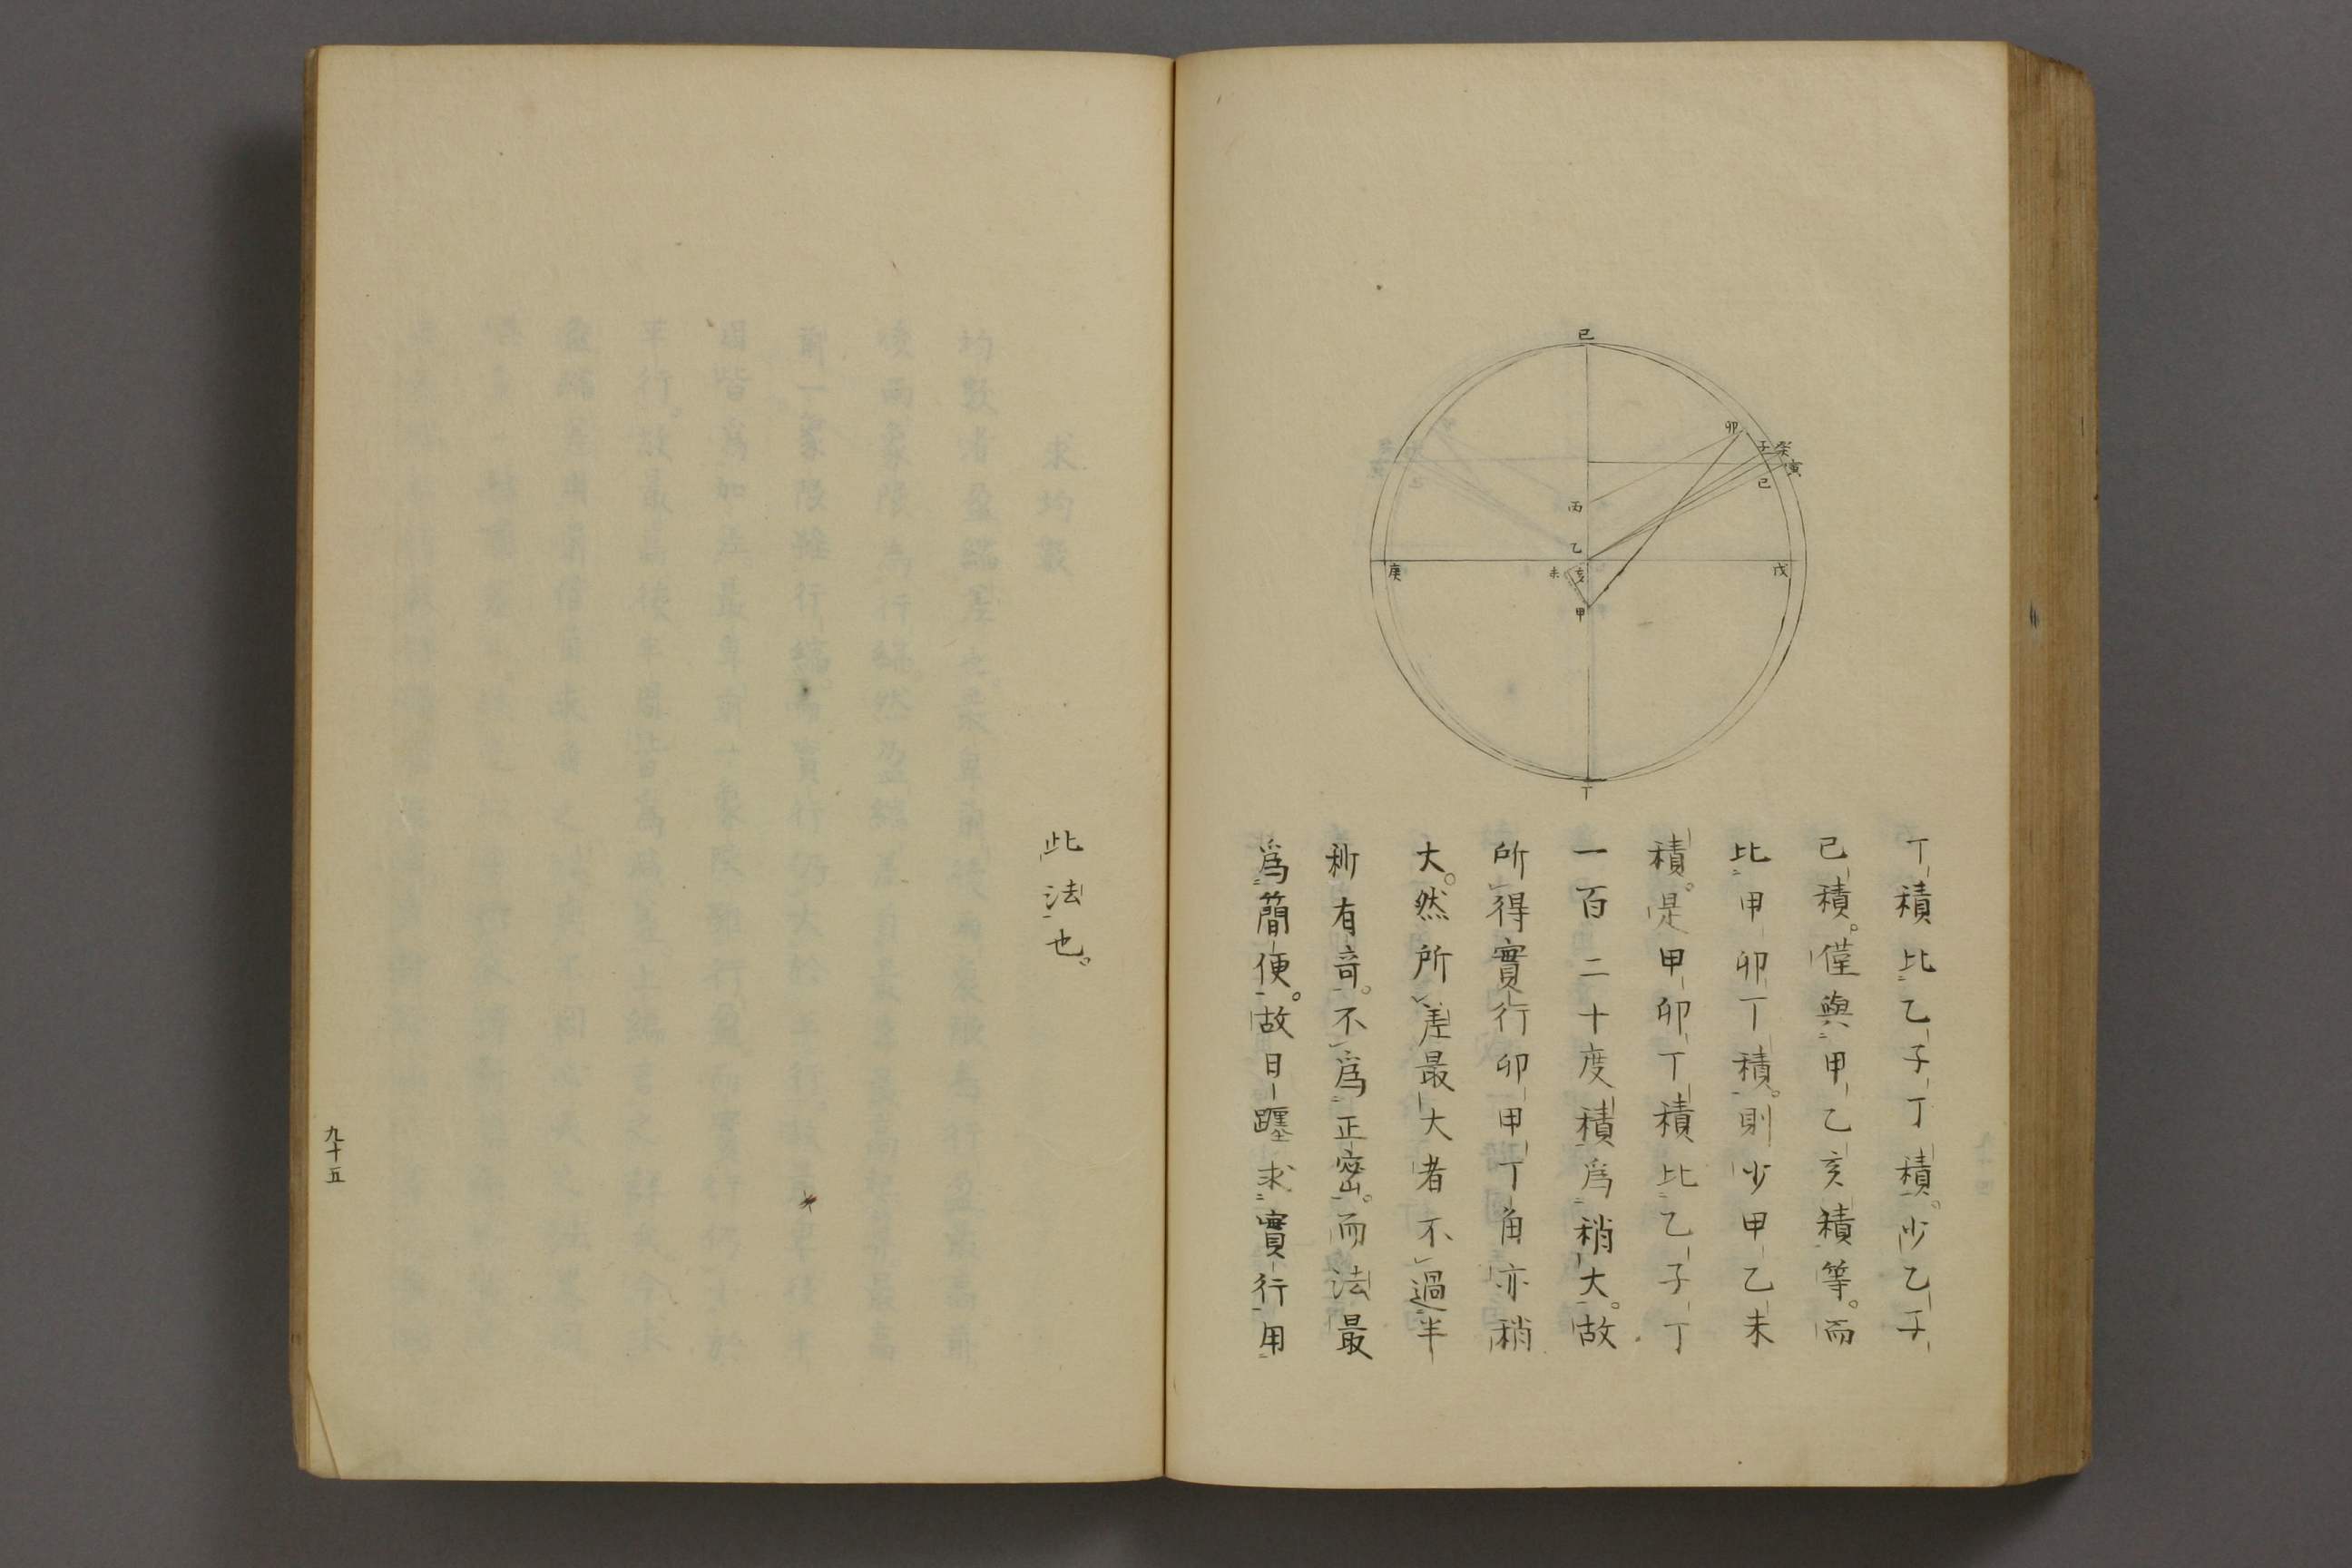 丁積比乙子丁積。少乙子
己積。僅與甲乙亥積等。而
比甲卯丁積。則少甲乙未
積。是甲卯丁積比乙子丁
一百二十度積爲稍大。故
所得實行卯甲丁角亦稍
大。然所差最大者不過半
秒有竒。不爲正密。而法最
爲簡便。故日躔求實行用
此法也。
己
卯
子
癸
寅
巳
丙
乙
庚
未
亥
戊
甲
丁
九十五